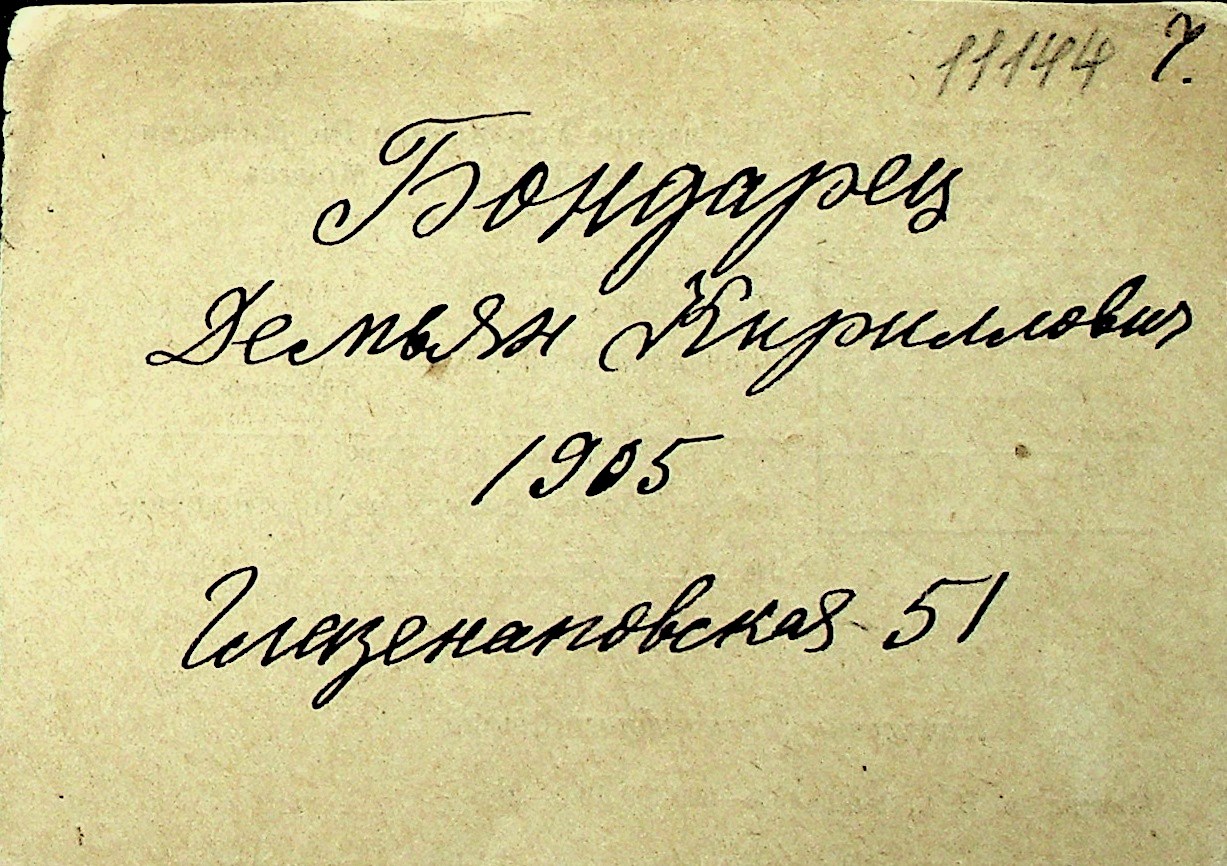 11144 7.
Бондарец
Демьян Кириллович
1905
Глазенаповская 51